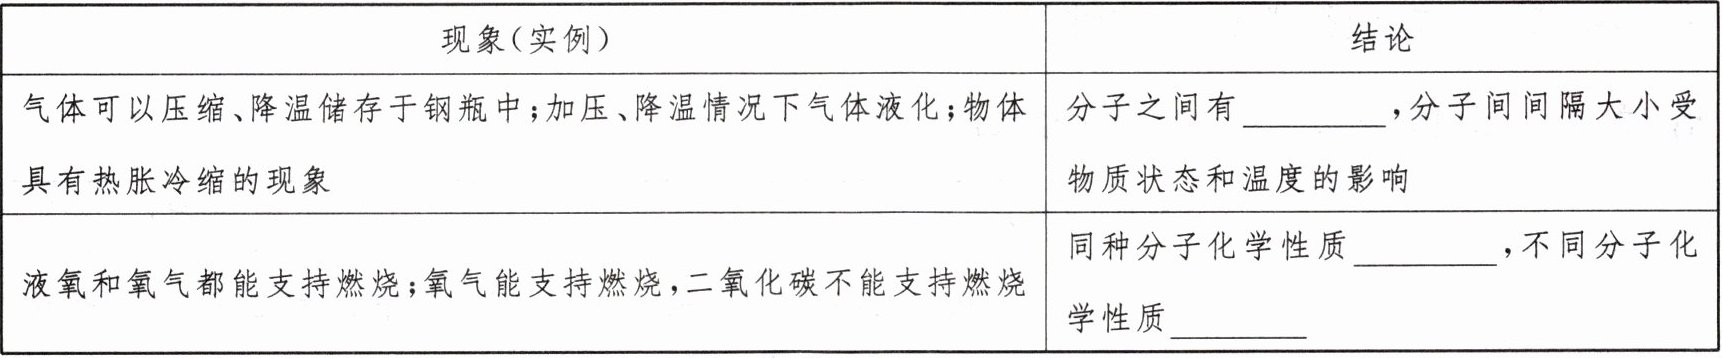 现象(实例)
结论
气体可以压缩、降温储存于钢瓶中;加压、降温情况下气体液化;物体
具有热胀冷缩的现象
分子之间有________,分子间间隔大小受
物质状态和温度的影响
液氧和氧气都能支持燃烧;氧气能支持燃烧,二氧化碳不能支持燃烧
同种分子化学性质________,不同分子化
学性质________